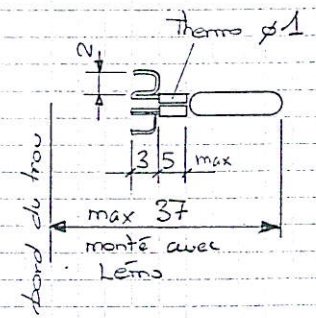 Thermo ⌀1
2
3 5 max
max 37
monté avec
Lémo
bord du trou